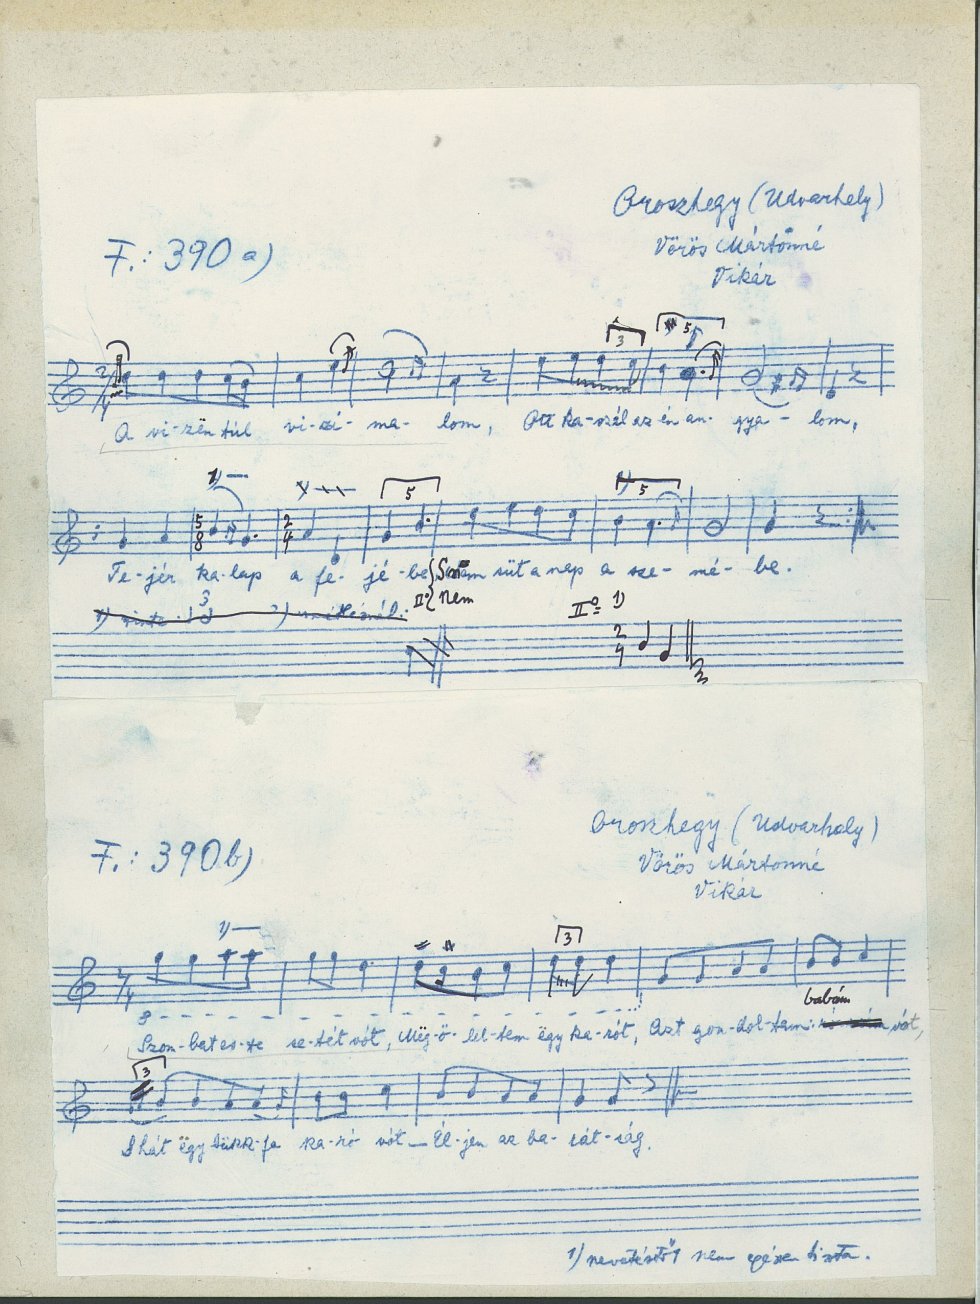 Oroszhegy (Udvarhely)
F.: 390 a)
Vörös Mártonné
Vikár
3 5
2/4
A vi-zën túl vi-zi-ma-lom, Ott ka-szál az én an-gya-lom,
1) 5 1) 5
5/8 2/4
Fe-jér ka-lap a fe-jé-be Sem süt a nap a sze-mé-be.
II° Nem
II° 1)
2/4
Oroszhegy (Udvarhely)
F.: 390 b)
Vörös Mártonné
Vikár
1) 3
2/4
babám
8
Szom-bat es-te se-tét vót, Mëg-ö-lel-tem ëgy ka-rót, Azt gon-dol-tam: vót,
3
S hát ëgy bükk-fa ka-ró vót – Él-jen az ba-rát-ság.
1) nevetéstől nem egészen tiszta.